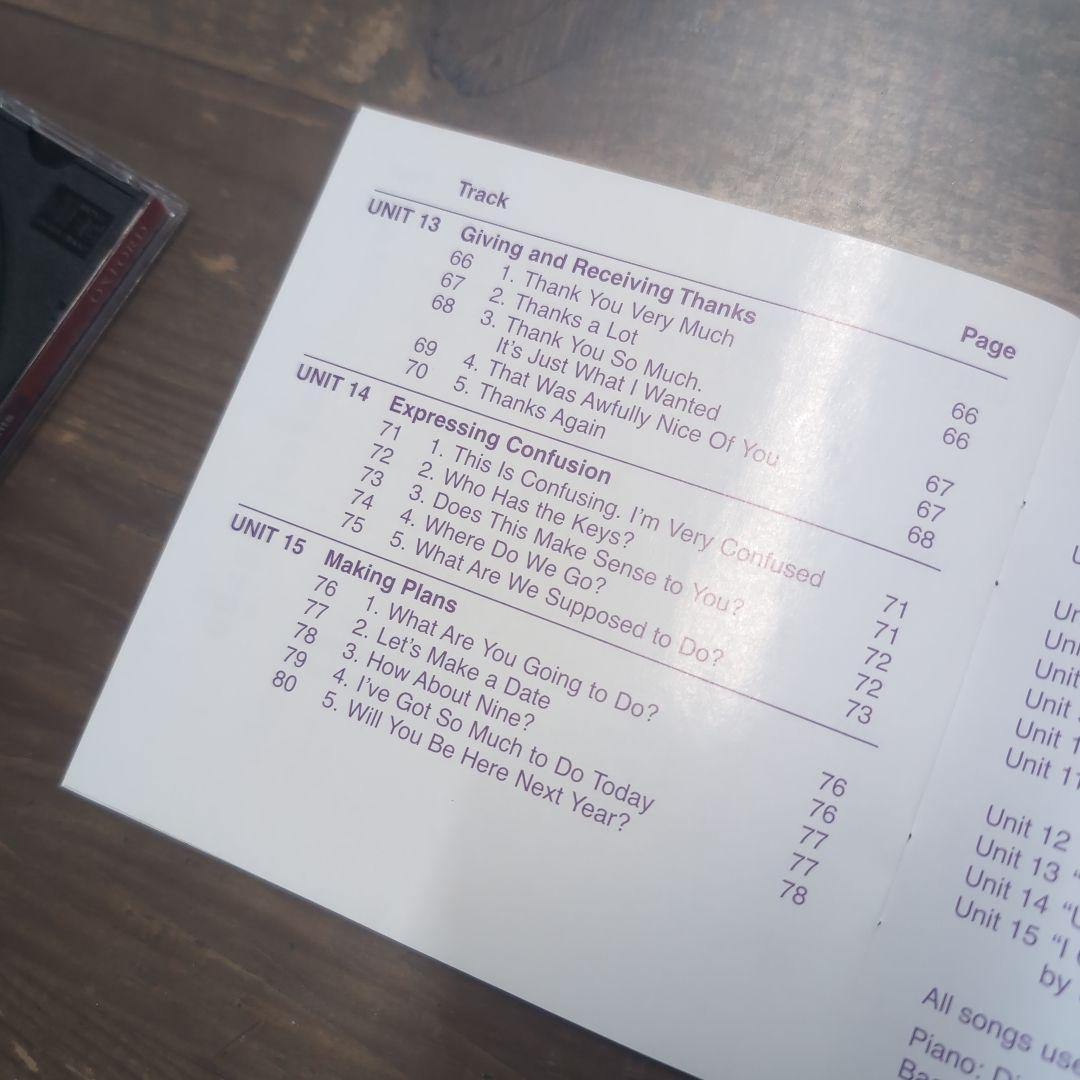 Track
Page
UNIT 13 Giving and Receiving Thanks
66 1. Thank You Very Much 66
67 2. Thanks a Lot 66
68 3. Thank You So Much.
It's Just What I Wanted 67
69 4. That Was Awfully Nice Of You 67
70 5. Thanks Again 68
UNIT 14 Expressing Confusion
71 1. This Is Confusing. I'm Very Confused 71
72 2. Who Has the Keys? 71
73 3. Does This Make Sense to You? 72
74 4. Where Do We Go? 72
75 5. What Are We Supposed to Do? 73
UNIT 15 Making Plans
76 1. What Are You Going to Do? 76
77 2. Let's Make a Date 76
78 3. How About Nine? 77
79 4. I've Got So Much to Do Today 77
80 5. Will You Be Here Next Year? 78
Unit
Unit
Unit 11
Unit 12
Unit 13 "
Unit 14 "
Unit 15 "I
by
All songs
Piano:
OXFORD